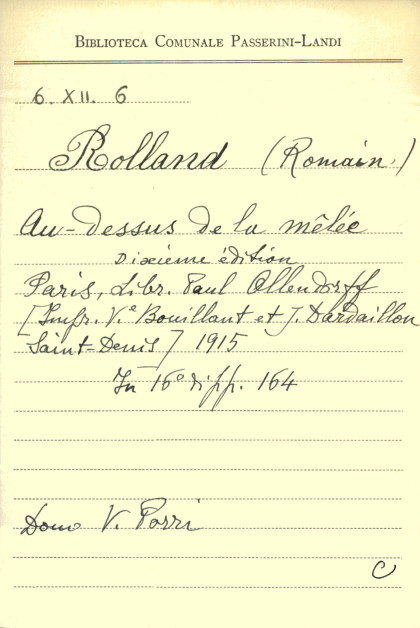 BIBLIOTECA COMUNALE PASSERINI-LANDI
6. XII. 6
Rolland (Romain)
Au-Dessus de la mêlée
Dixieme édition
Paris, Libr. Paul Ollendorff
[Impr. V.e Bouillant et J. Dardaillon
Saint-Denis] 1915
In 16° di pp. 164
Dono V. Porri
C